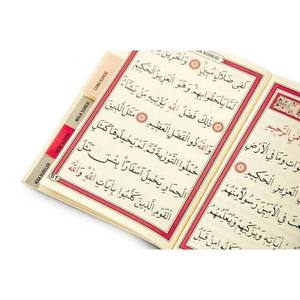 لَفِي ضَلَالٍ مُبِينٍ وَآخَرِينَ مِنْهُمْ
لَمَّا يَلْحَقُوا بِهِمْ وَهُوَ الْعَزِيزُ الْحَكِيمُ
ذَلِكَ فَضْلُ اللَّهِ يُؤْتِيهِ مَنْ يَشَاءُ
وَاللَّهُ ذُو الْفَضْلِ الْعَظِيمِ مَثَلُ الَّذِينَ
حُمِّلُوا التَّوْرَاةَ ثُمَّ لَمْ يَحْمِلُوهَا كَمَثَلِ
الْحِمَارِ يَحْمِلُ أَسْفَارًا بِئْسَ مَثَلُ
الْقَوْمِ الَّذِينَ كَذَّبُوا بِآيَاتِ اللَّهِ وَاللَّهُ
CUMA SURESİ
الرَّحِيمِ
وَمَا فِي الْأَرْضِ
الْعَزِيزِ الْحَكِيمِ
فِي الْأُمِّيِّينَ رَسُولًا مِنْهُمْ
وَيُزَكِّيهِمْ وَيُعَلِّمُهُمُ
كَانُوا مِنْ قَبْلُ